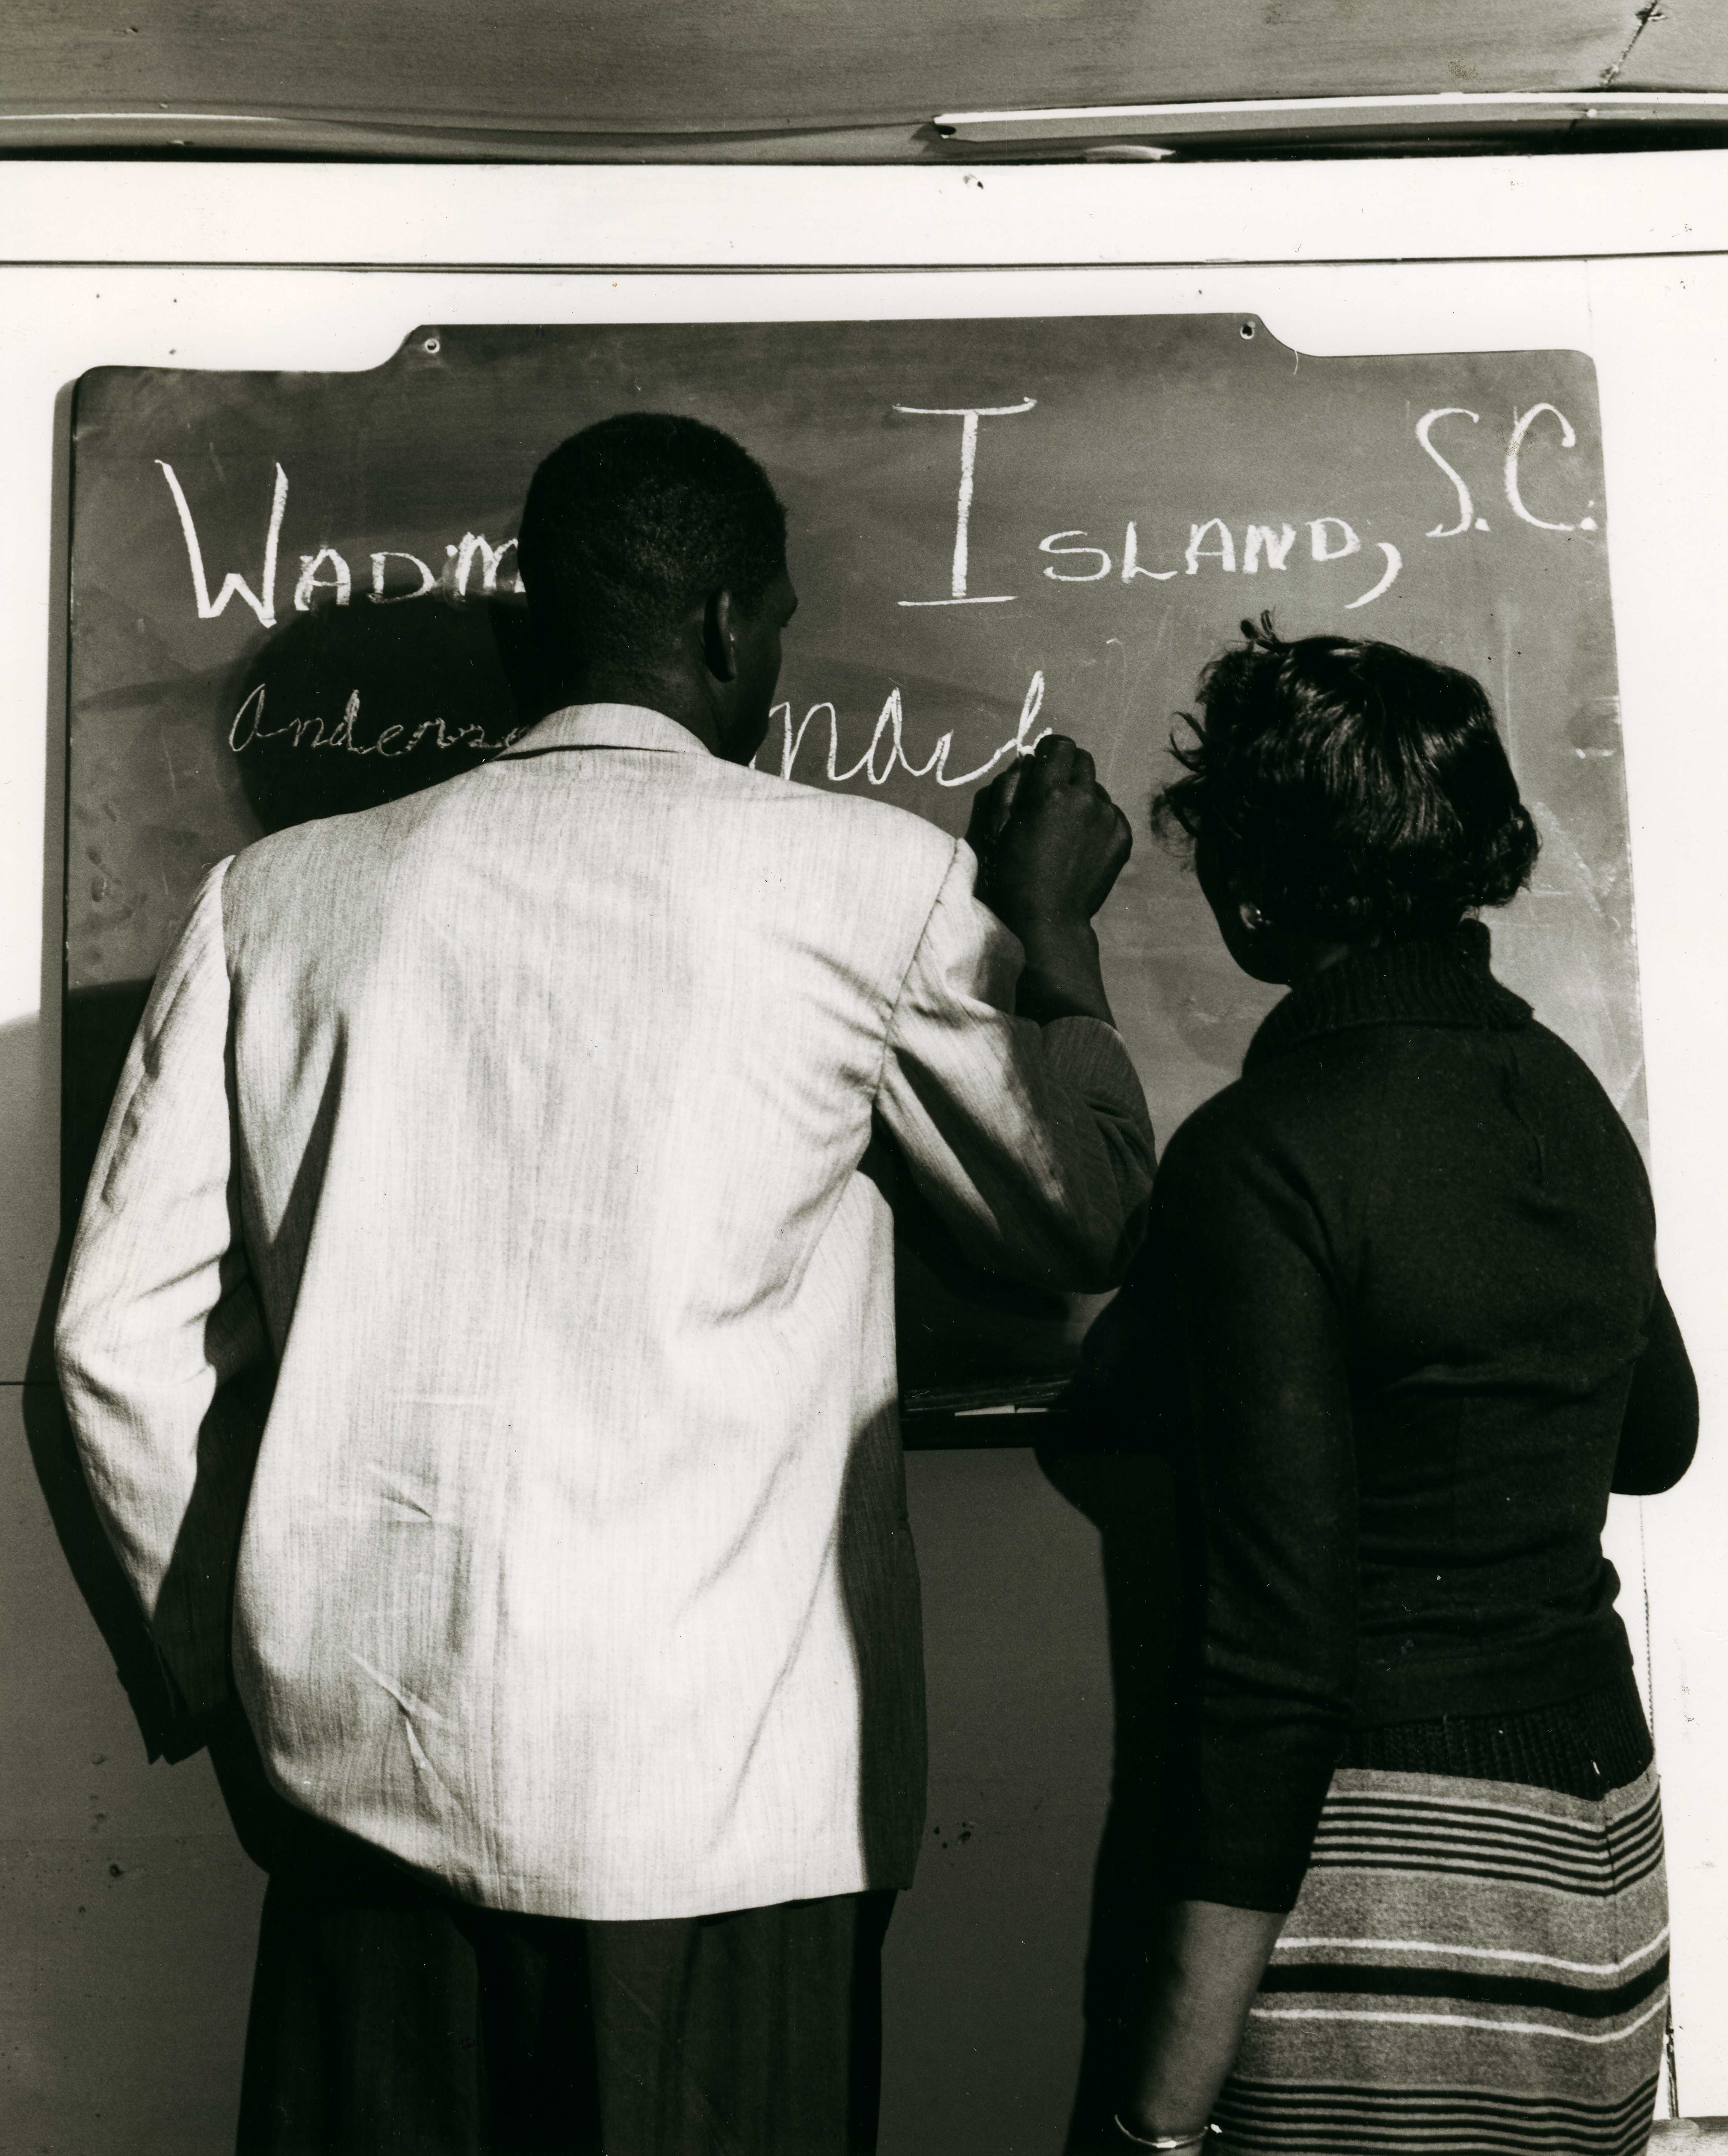 WADM ISLAND, S.C.
anderso Mack